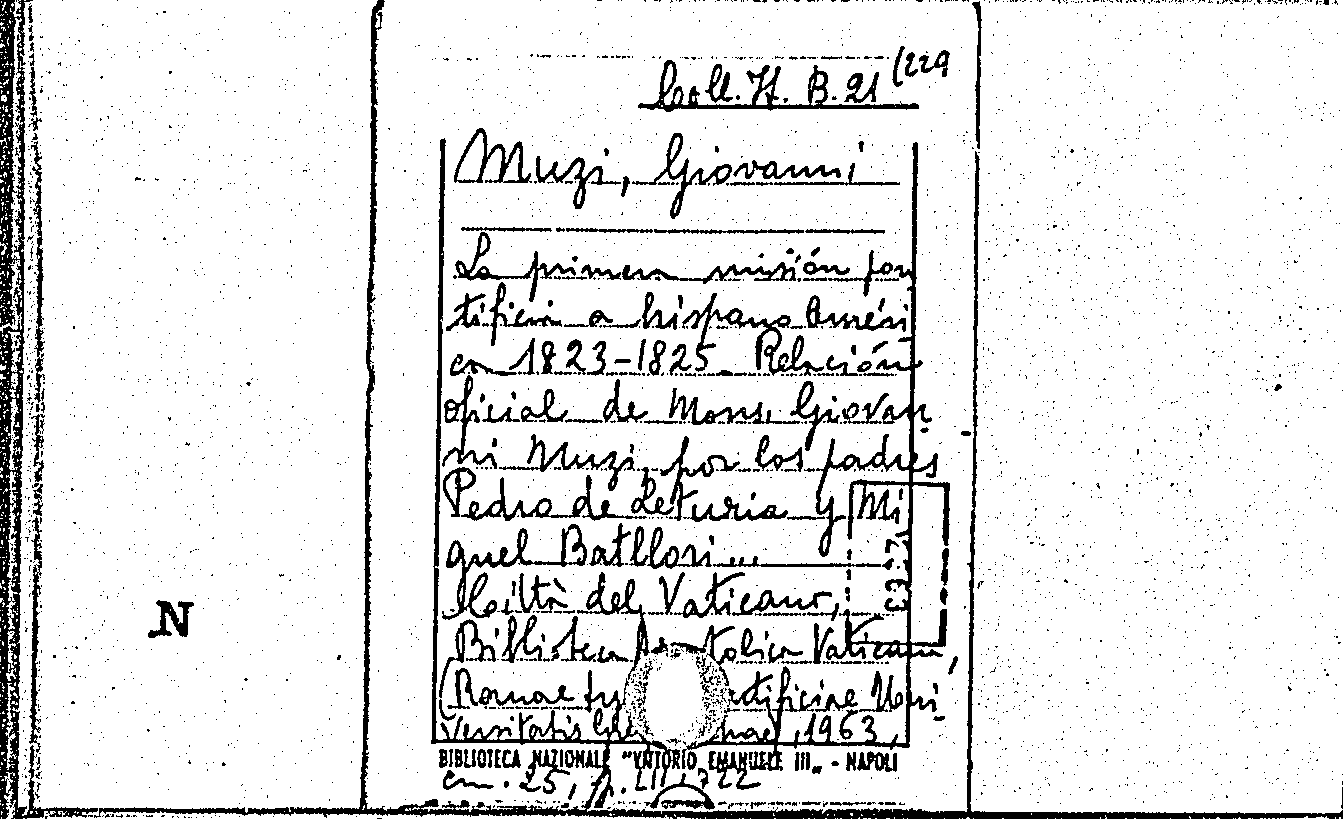 Coll. It. B. 21 (229
Muzi, Giovanni
La primera misión pon
tificia a hispano Améri
ca 1823-1825. Relación
oficial de Mons. Giovan
ni Muzi, por los padres
Pedro de Leturia y Mi
quel Batllori...
Città del Vaticano,
Biblioteca Apostolica Vaticana,
(Romae ty tificiae Uni
versitatis Gre nae), 1963,
BIBLIOTECA NAZIONALE "VITTORIO EMANUELE III" - NAPOLI
cm. 25, pp.
N